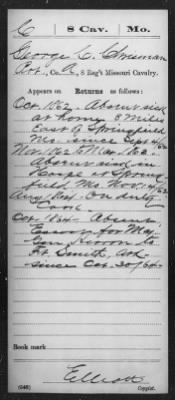 C 8 Cav. Mo.
George C. Chrisman
, Co. A, 8 Reg't Missouri Cavalry.
Appears on Returns as follows:
Oct. 1862. Absent sick
at home 8 Miles
East of Springfield
Mo. since Sept
Nov. 1862
Absent sick in
field Mo. Nov.
Aug 1864. On duty
Oct. 1864. Absent
Escort for Maj.
Gen. Herron to
Ft. Smith, Ark
since Oct. 30/64.
Book mark
(546)
Elliott
Copyist.